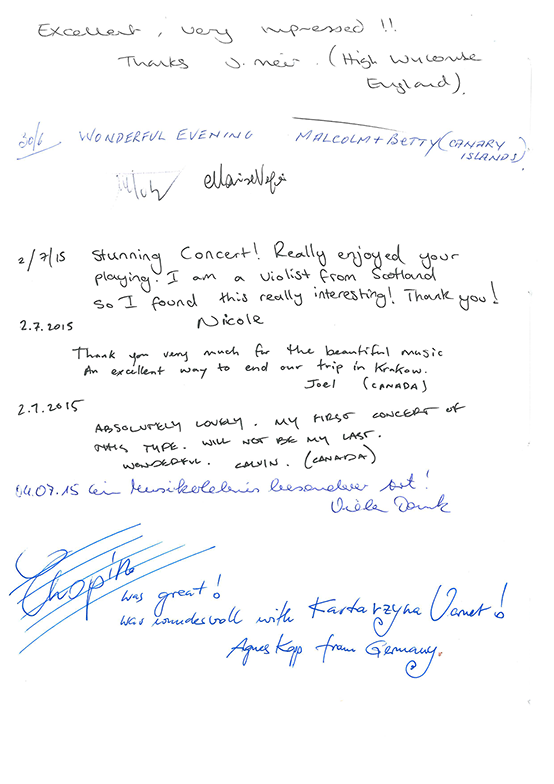 Excellent, very impressed !!
Thanks J. Meir. (High Wycombe
England).
30/6 WONDERFUL EVENING MALCOLM + BETTY (CANARY
ISLANDS).
2/7/15 Stunning Concert! Really enjoyed your
playing. I am a violist from Scotland
so I found this really interesting! Thank you!
Nicole
2.7.2015
Thank you very much for the beautiful music
An excellent way to end our trip in Krakow.
Joel (CANADA)
2.7.2015
ABSOLUTELY LOVELY. MY FIRST CONCERT OF
THIS TYPE. WILL NOT BE MY LAST.
WONDERFUL. CALVIN. (CANADA)
04.07.15 Ein Musikerlebnis besonderer Art!
Vielen Dank
Chopin
was great!
was wundervoll with Kartarzyna
Agnes Kopp from Germany.